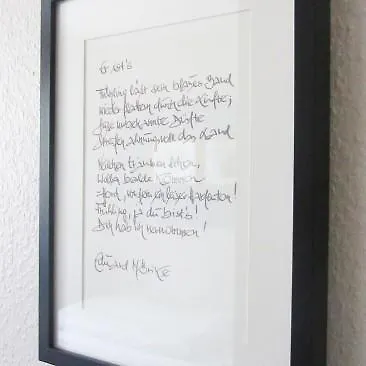 Er ist's
Frühling läßt sein blaues Band
wieder flattern durch die Lüfte;
süße wohlbekannte Düfte
streifen ahnungsvoll das Land
Veilchen träumen schon,
Wollen balde kommen
Horch, von fern ein leiser Harfenton!
Frühling, ja du bist's!
Dich hab ich vernommen!
Eduard Mörike